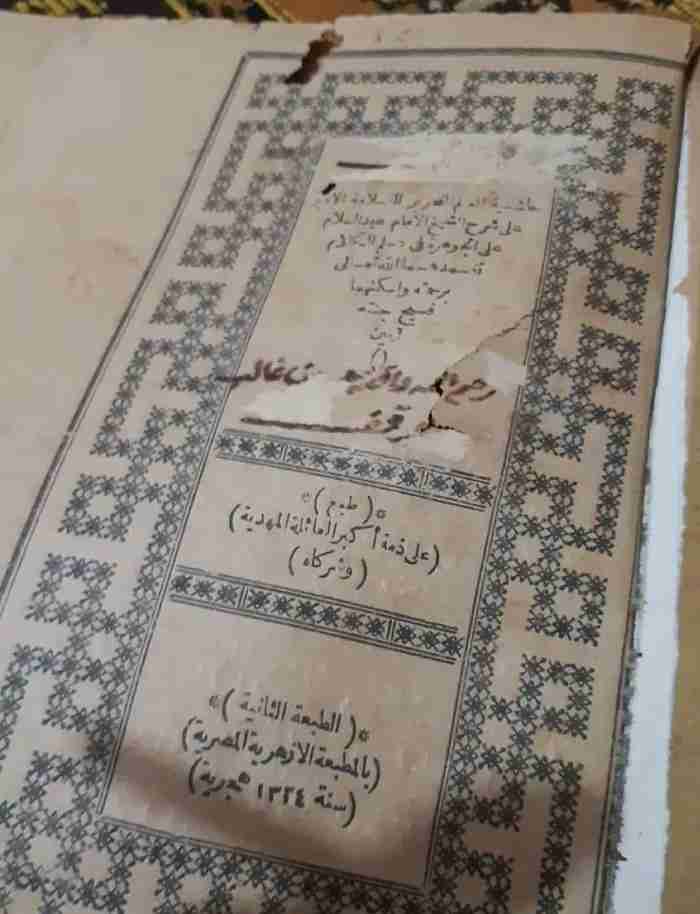 حاشية العالم النحرير العلامة الامير
على شرح الشيخ الامام عبدالسلام
على الجوهرة فى علم الكلام
تغمدهما الله تعالى
برحمته واسكنهما
فسيح جنته
آمين
*(طبع)*
(على ذمة أكبر العائلة المهدية)
(وشركاه)
*(الطبعة الثانية)*
(بالمطبعة الازهرية المصرية)
(سنة ١٣٢٤ هجرية)